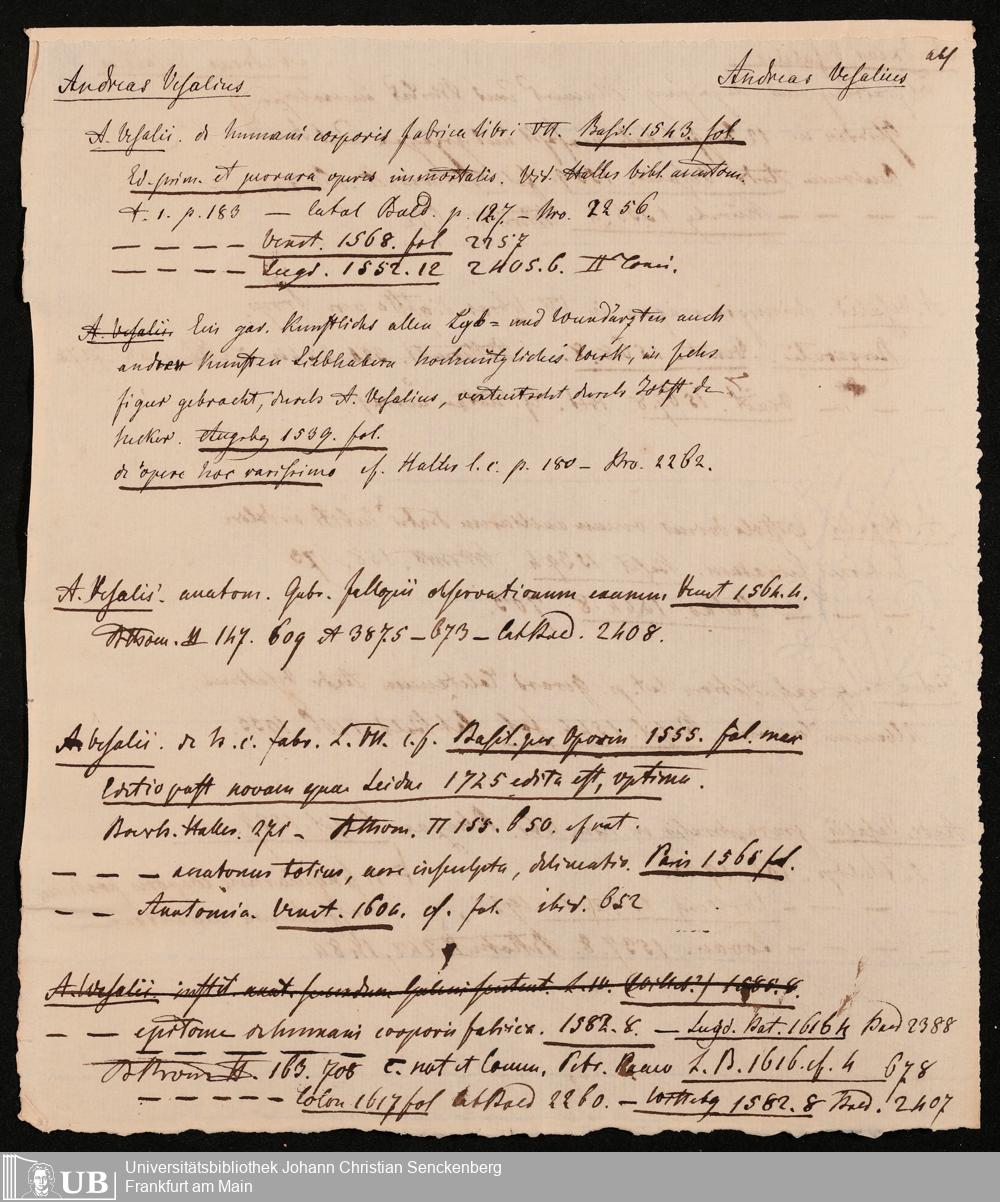 Andreas Vesalius Andreas Vesalius
A. Vesalii. de humani corporis fabrica libri VII. Basil. 1543. fol.
Ed. prim. et perrara operis immortalis. Vid. Halleri bibl. anatom.
t. 1. p. 183 — Catal Bald. p. 127 — Nro. 2256.
— — — — Venet. 1568. fol 2257
— — — — Lugd. 1552. 12 2405.6. II Tomi.
A. Vesalii. Ein gar. Kunstlichs allen Leyb= und Wundärzten auch
andrer Künsten Liebhabern hochnützliches Werk, in sechs
figur gebracht, durch A. Vesalius, verteutscht durch Jobst de
necker. Augsbg 1539. fol.
de opere hoc rarissimo cf. Haller l. c. p. 180 — Nro. 2262.
A. Vesalii. anatom. Gabr. fallopii observationum examen Venet 1564. 4.
II 147. 609 A 3875 — 673 — Cat Bald. 2408.
A. Vesalii. de h. c. fabr. L. VII. c. f. Basil. per Oporin 1555. fol. max
Editio post novam quae Leidae 1725 edita est, optima.
Boerh. Haller. 271 — II 155. 650. cf nat.
— — — anatomes totius, aere insculpta, delineatio. Paris 1565 fol.
— — Anatomia. Venet. 1604. cf. fol. ibid. 652
A. Vesalii. instit. anat. secundum Galeni sentent. L. IV. 1585. 8.
— — epitome de humani corporis fabrica. 1582. 8. — Lugd. Bat. 1616 4 Bald 2388
II. 163. 708 c. not et Comm. Petr. Paaw L. B. 1616. cf. 4 678
— — — — — Colon 1617 fol Cat Bald 2260. — Witteb 1582. 8 Bald. 2407
UB Universitätsbibliothek Johann Christian Senckenberg
Frankfurt am Main